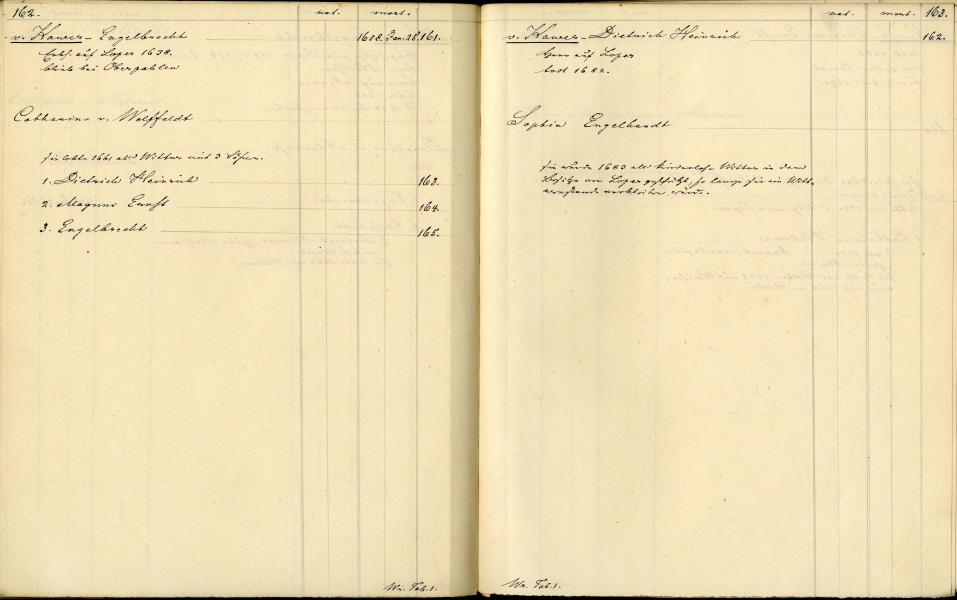 162. nat. mort.
v. Kawer - Engelbrecht 1658. Jan. 28. 161.
Erbh. auf Loper 1638.
blieb bei Oberpahlen
Catharina v. Wolffeldt
sie lebte 1661 als Wittwe mit 3 Söhnen.
1. Dietrich Heinrich 163.
2. Magnus Ernst 164.
3. Engelbrecht 165.
Wr. Tab. 1.
nat. mort. 163.
v. Kawer - Dietrich Heinrich 162.
Herr auf Loper
todt 1682.
Sophia Engelhardt
sie wurde 1683 als kinderlose Wittwe in dem
Besitze von Loper geschützt, so lange sie im Witt-
wenstande verbleiben würde.
Wr. Tab. 1.